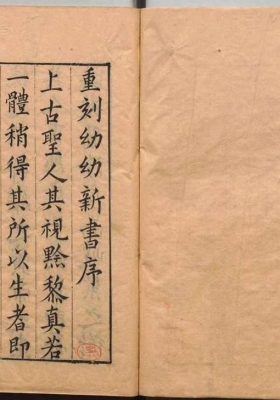 重刻幼幼新書序
上古聖人其視黔黎真若
一體稍得其所以生者即